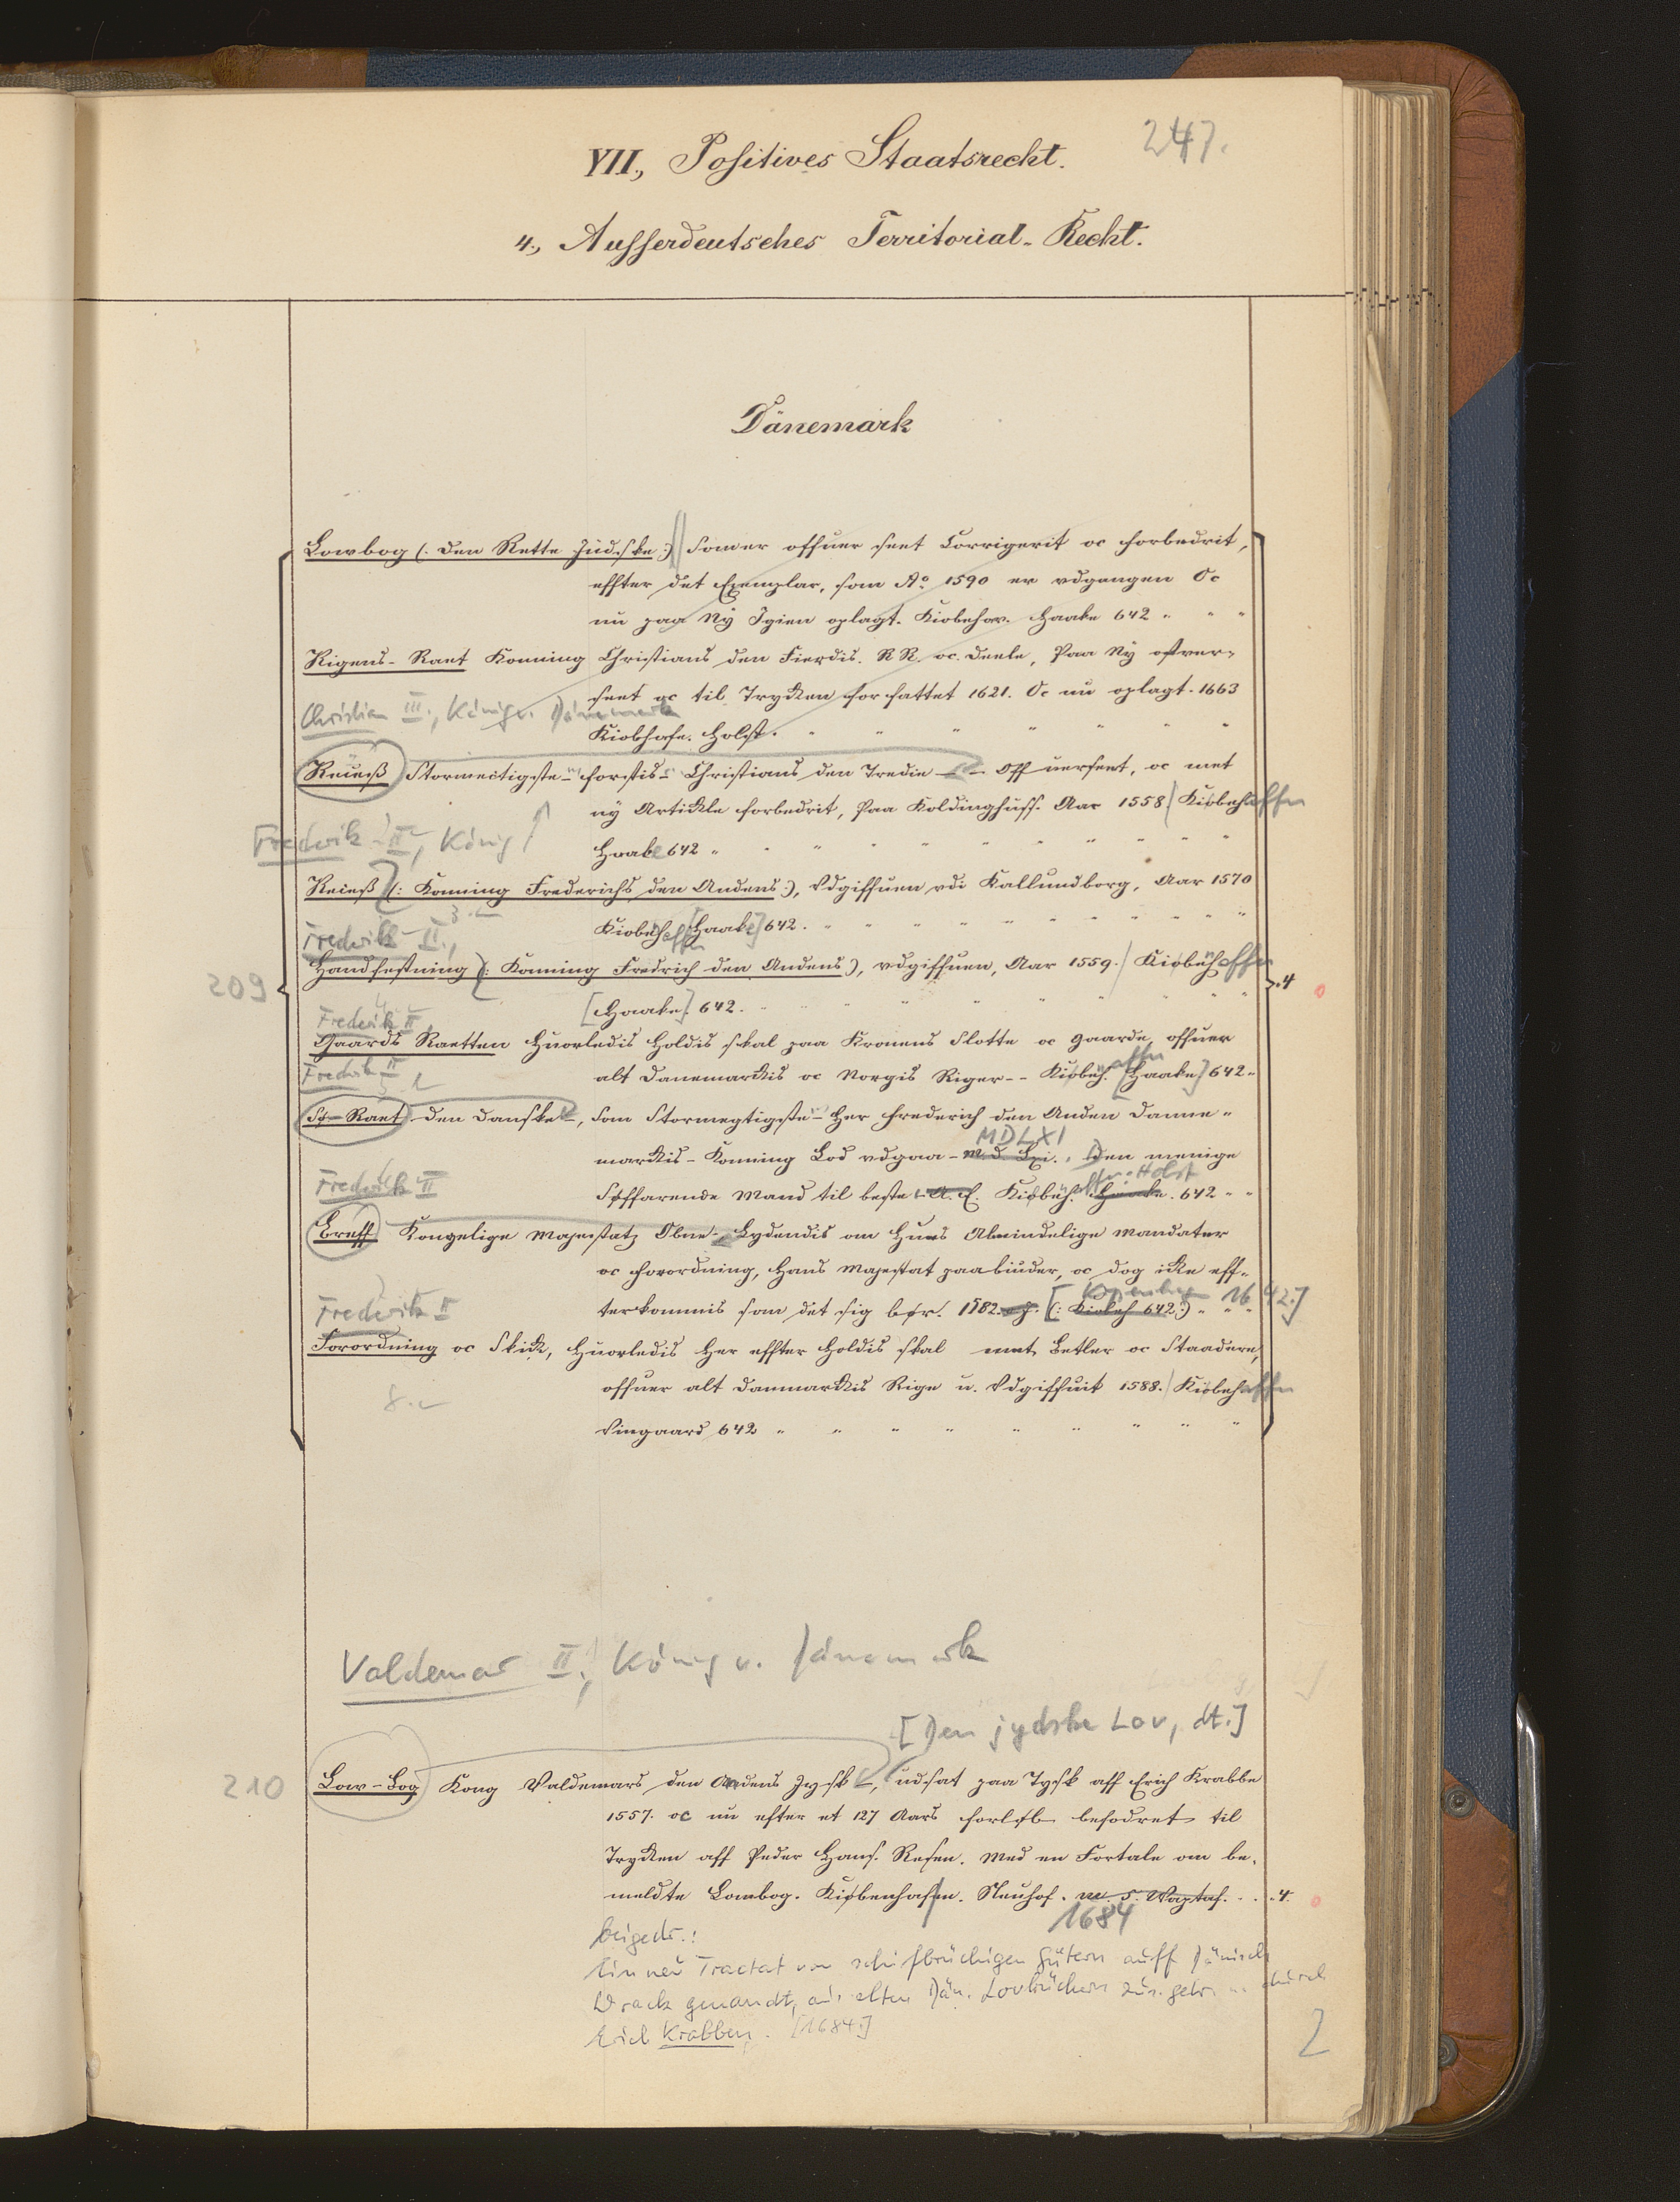 247.
VII., Positives Staatsrecht.
4., Ausserdeutsches Territorial-Recht.
Dänemark
Lowbog (: Den Rette Jüdske :) Somer offuer seet Corrigerit oc forbedrit,
effter det Exemplar, som Ao. 1590 er vdgangen Oc
nu paa Ny Igien oplagt. Kiobehav. Haake 642 " " "
Rigens-Raet Konning Christians den Fierdis. RR. oc. Deele, Paa Ny ofver-
seet oc til Trycken forfattet 1621. Oc nu oplagt. 1663
Christian III., König v. Dänemark
Kiobhafn. Holst. " " " " " "
Receß Stormectigste - forstis - Christians den Tredie - Off uerseet, oc met
ny Artickle forbedrit, Paa Koldinghuss. Aar 1558. Kiobehaffn
Frederik II, König
Haake 642 " " " " " " " " " "
Receß (: Konning Frederichs den Andens :), Vdgiffuen vdi Kallundborg, Aar 1570
Kiobehaffn [Haake] 642. " " " " " " " " "
Frederik II.,
Handfestning (: Konning Fredrich den Andens), vdgiffuen, Aar 1559. Kiobenhaffn
209
[Haake]. 642. " " " " " " " .4
Frederik II,
Gaards Raetten Huorledis Holdis skal paa Kronens Slotte oc Gaarde, offuer
alt Danemarckis oc Norgis Riger -- Kiøbeh.affn [Haake] 642 "
Frederik II
Sø-Raet den Danske -, som Stormegtigste - Her Frederich den Anden Danne "
marckis - Konning Lod vdgaa - m. d. Lxi. MDLXI. Den menige
Frederik II
Søffarende Mand til beste Kiøbeh.affn: Holst Haake. 642 " "
Breff Kongelige Majestatz Obne - Lydendis om Huns Almindelige Mandater
oc Forordning, Hans Majestat paabiuder, oc dog icke eff-
Frederik II
terkommis som det sig bør. 1582. (: Kiobeh 642 :) [Kopenhagen 1642.]
Forordning oc Skick, Huorledis Her effter Holdis skal met Betler oc Staadere,
offuer alt Danmarckis Rige u. Vdgiffuit 1588. Kiobehaffn
8.
Vingaard 642 " " " " " " " " "
Valdemar II, König v. Dänemark
[Den jydske Lov, dt.]
210
Low-Bog Kong Valdemars den Andens Jyske -, udsat paa Tysk aff Erich Krabbe
1557. oc nu efter et 127 Aars Forløb befodret til
Trycken aff Peder Hans. Resen. Med en Fortale om be-
meldte Lowbog. Kiøbenhafn. Neuhof. 1684 . . .4.
beigedr.:
Ein neu Tractat von schifbrüchigen Gütern auff Dänisch
Wrack genandt, aus alten Dän. Lovbüchern zus.gebr. durch
Erich Krabben. [1684.]
2